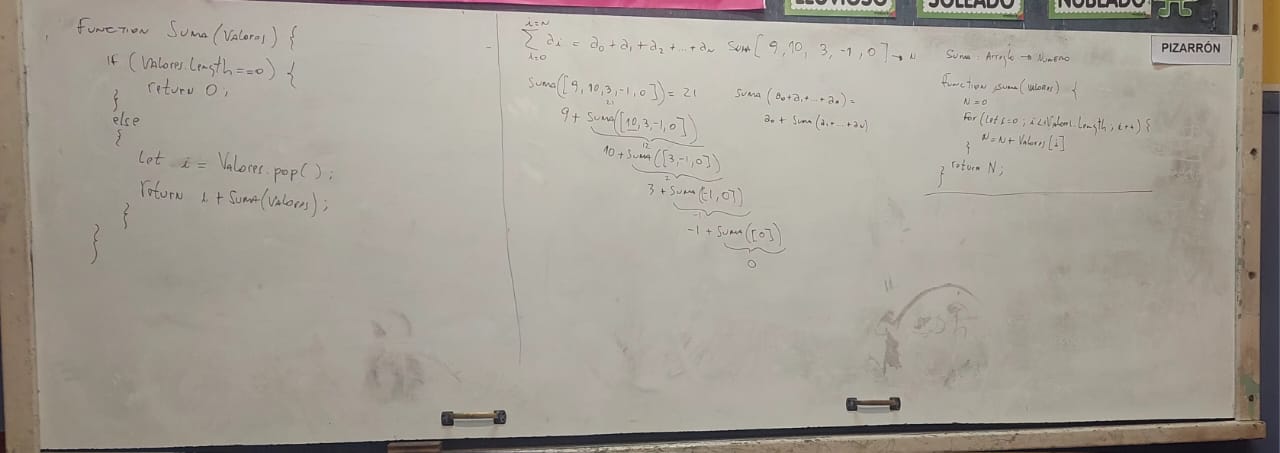 LLUVIOSO
SOLEADO
NUBLADO
PIZARRÓN
Function Suma(Valores) {
if (Valores.length==0) {
return 0;
}
else
{
let i = Valores.pop();
return i + Suma(Valores);
}
}
i=N
∑ ai = a0 + a1 + a2 + ... + aN
i=0
Suma [9, 10, 3, -1, 0] → N
Suma([9, 10, 3, -1, 0]) = 21
9 + Suma([10, 3, -1, 0])
12
10 + Suma([3, -1, 0])
2
3 + Suma([-1, 0])
-1
-1 + Suma([0])
0
Suma (a0 + a1 + ... + aN) =
a0 + Suma(a1 + ... + aN)
Suma: Arreglo → Numero
Function suma(valores) {
N=0
For (let i=0; i<Valores.length; i++) {
N=N+ Valores[i]
}
return N;
}